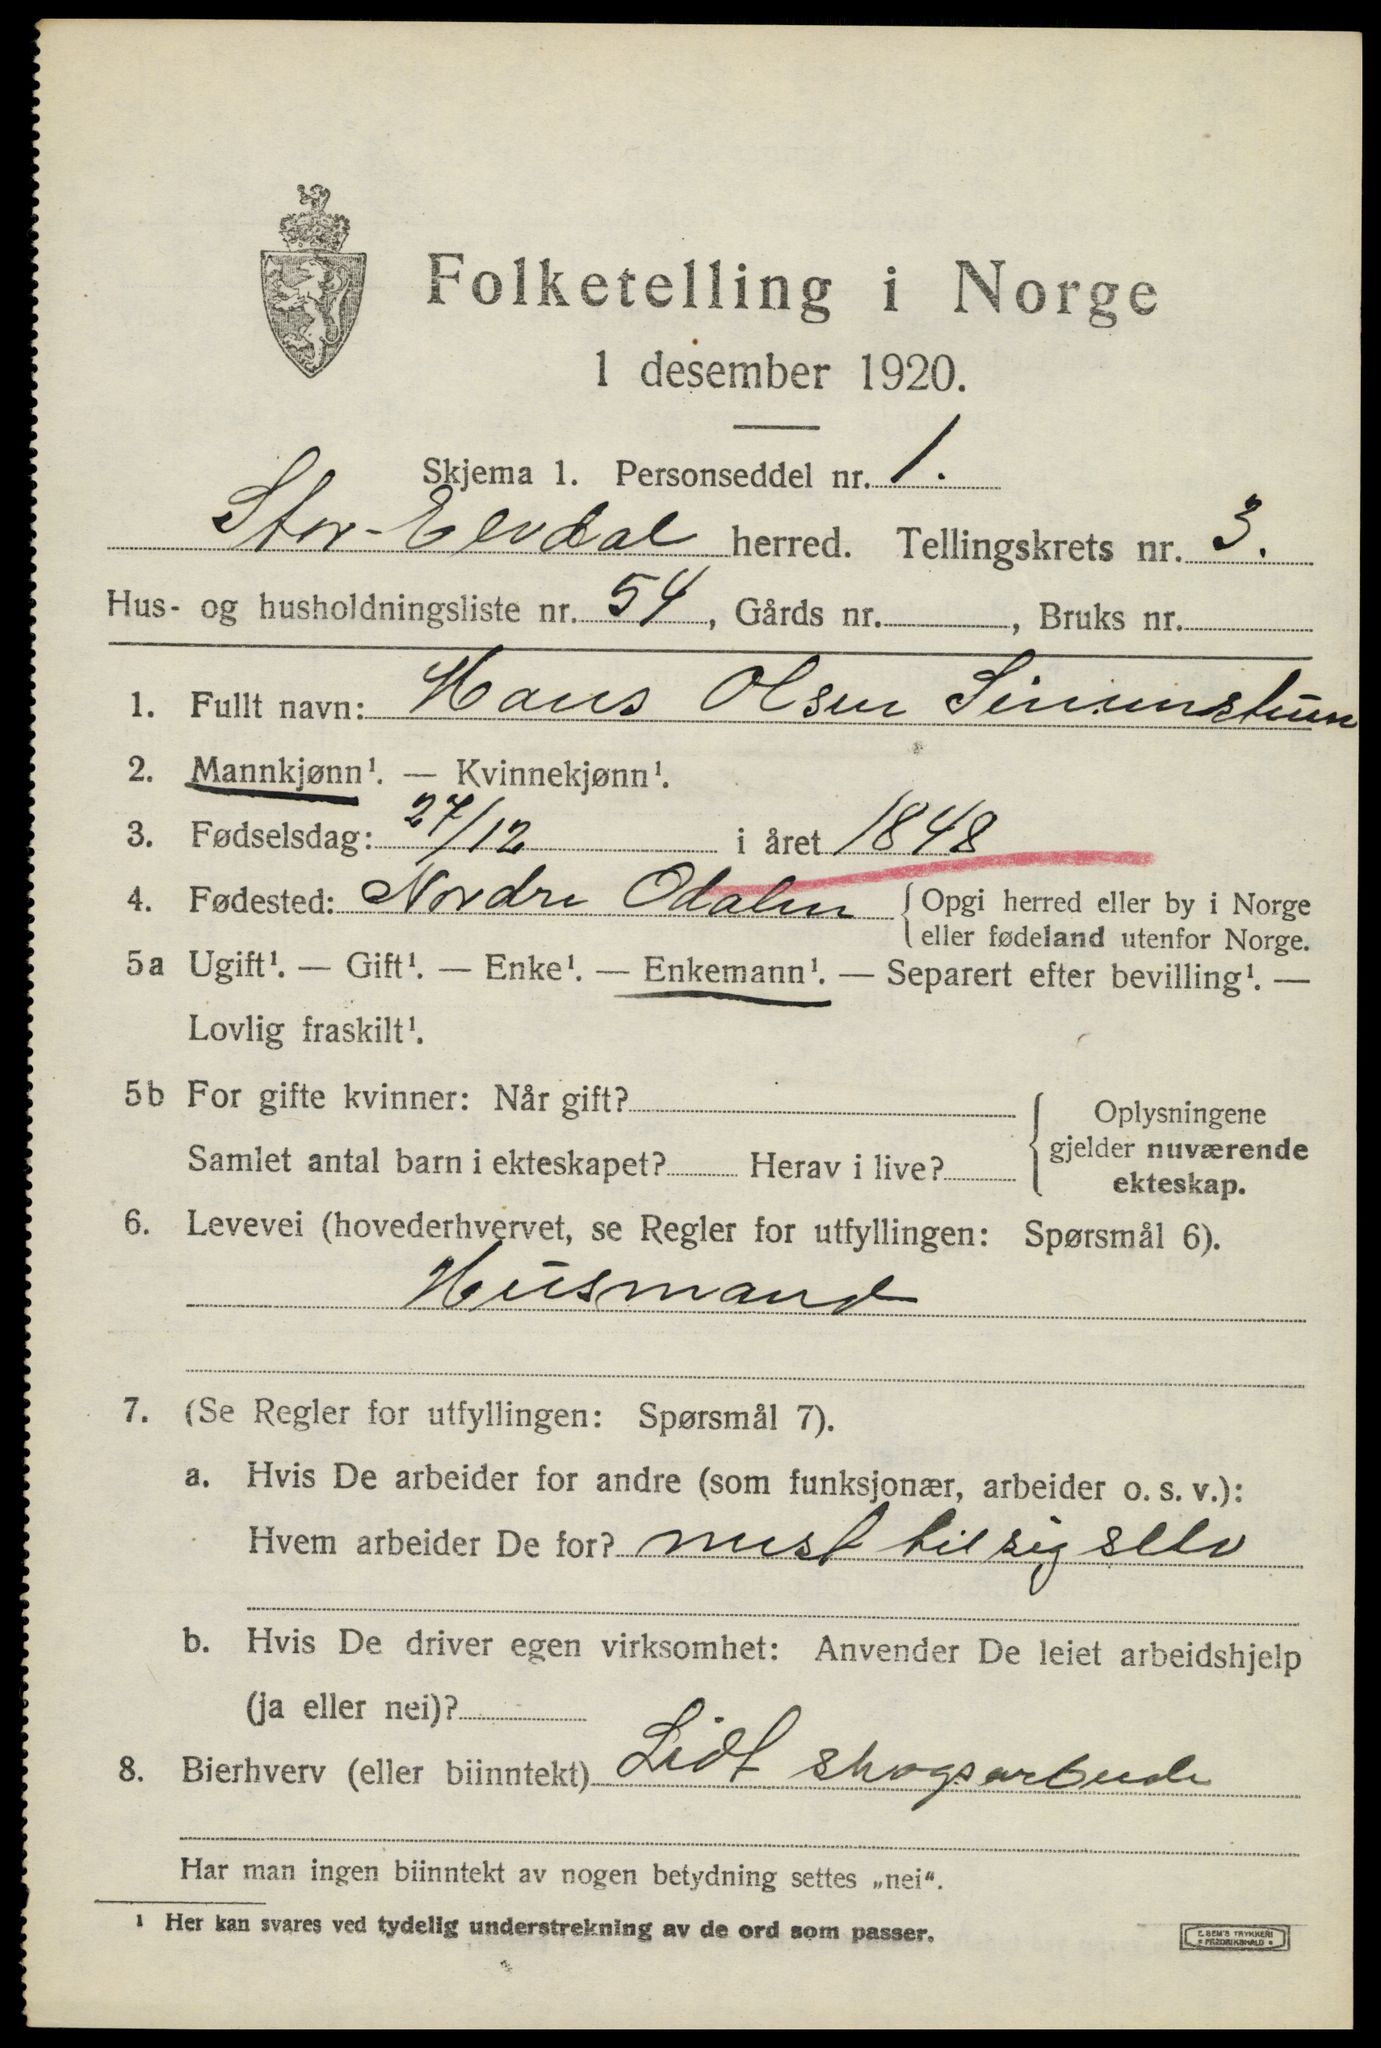 Folketelling i Norge
1 desember 1920.
Skjema 1. Personseddel nr. 1.
Stor-Elvdal herred. Tellingskrets nr. 3.
Hus- og husholdningsliste nr. 54, Gårds nr. , Bruks nr.
1. Fullt navn: Hans Olsen
2. Mannkjønn¹. — Kvinnekjønn¹.
3. Fødselsdag: 27/12 i året 1848
4. Fødested: Nordre Odalen { Opgi herred eller by i Norge
eller fødeland utenfor Norge.
5a Ugift¹. — Gift¹. — Enke¹. — Enkemann¹. — Separert efter bevilling¹. —
Lovlig fraskilt¹.
5b For gifte kvinner: Når gift?
Samlet antal barn i ekteskapet? Herav i live?
{ Oplysningene
gjelder nuværende
ekteskap.
6. Levevei (hovederhvervet, se Regler for utfyllingen: Spørsmål 6).
Husmand
7. (Se Regler for utfyllingen: Spørsmål 7).
a. Hvis De arbeider for andre (som funksjonær, arbeider o. s. v.):
Hvem arbeider De for? mest til sig selv
b. Hvis De driver egen virksomhet: Anvender De leiet arbeidshjelp
(ja eller nei)?
8. Bierhverv (eller biinntekt) Lidt skogsarbeide
Har man ingen biinntekt av nogen betydning settes „nei“.
¹ Her kan svares ved tydelig understrekning av de ord som passer.
E. SEM'S TRYKKERI
FREDRIKSHALD